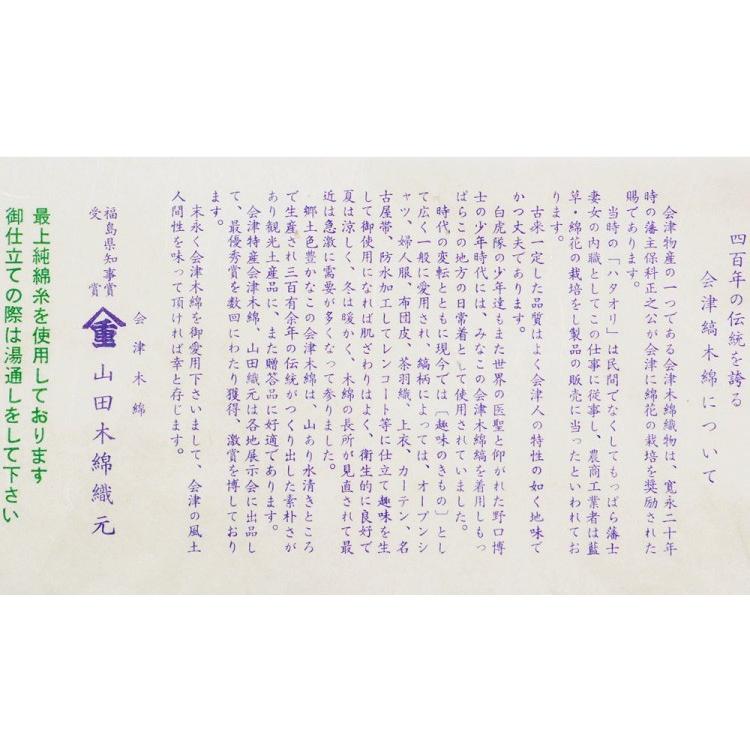 四百年の伝統を誇る
会津縞木綿について
会津物産の一つである会津木綿織物は、寛永二十年
時の藩主保科正之公が会津に綿花の栽培を奨励された
賜であります。
当時の「ハタオリ」は民間でなくしてもっぱら藩士
妻女の内職としてこの仕事に従事し、農商工業者は藍
草・綿花の栽培をし製品の販売に当ったといわれてお
ります。
古来一定した品質はよく会津人の特性の如く地味で
かつ丈夫であります。
白虎隊の少年達もまた世界の医聖と仰がれた野口博
士の少年時代には、みなこの会津木綿縞を着用しもっ
ぱらこの地方の日常着として使用されていました。
時代の変転とともに現今では〔趣味のきもの〕とし
て広く一般に愛用され、縞柄によっては、オープンシ
ャツ、婦人服、布団皮、茶羽織、上衣、カーテン、名
古屋帯、防水加工してレンコート等に仕立て趣味を生
して御使用になれば肌ざわりはよく、衛生的に良好で
夏は涼しく、冬は暖かく、木綿の長所が見直されて最
近は急激に需要が多くなって参りました。
郷土色豊かなこの会津木綿は、山あり水清きところ
で生産され三百有余年の伝統がつくり出した素朴さが
あり観光土産品に、また贈答品に好適であります。
会津特産会津木綿、山田織元は各地展示会に出品し
て、最優秀賞を数回にわたり獲得、激賞を博しており
ます。
末永く会津木綿を御愛用下さいまして、会津の風土
人間性を味って頂ければ幸と存じます。
会津木綿
福島県知事賞
受賞
重 山田木綿織元
最上純綿糸を使用しております
御仕立ての際は湯通しをして下さい